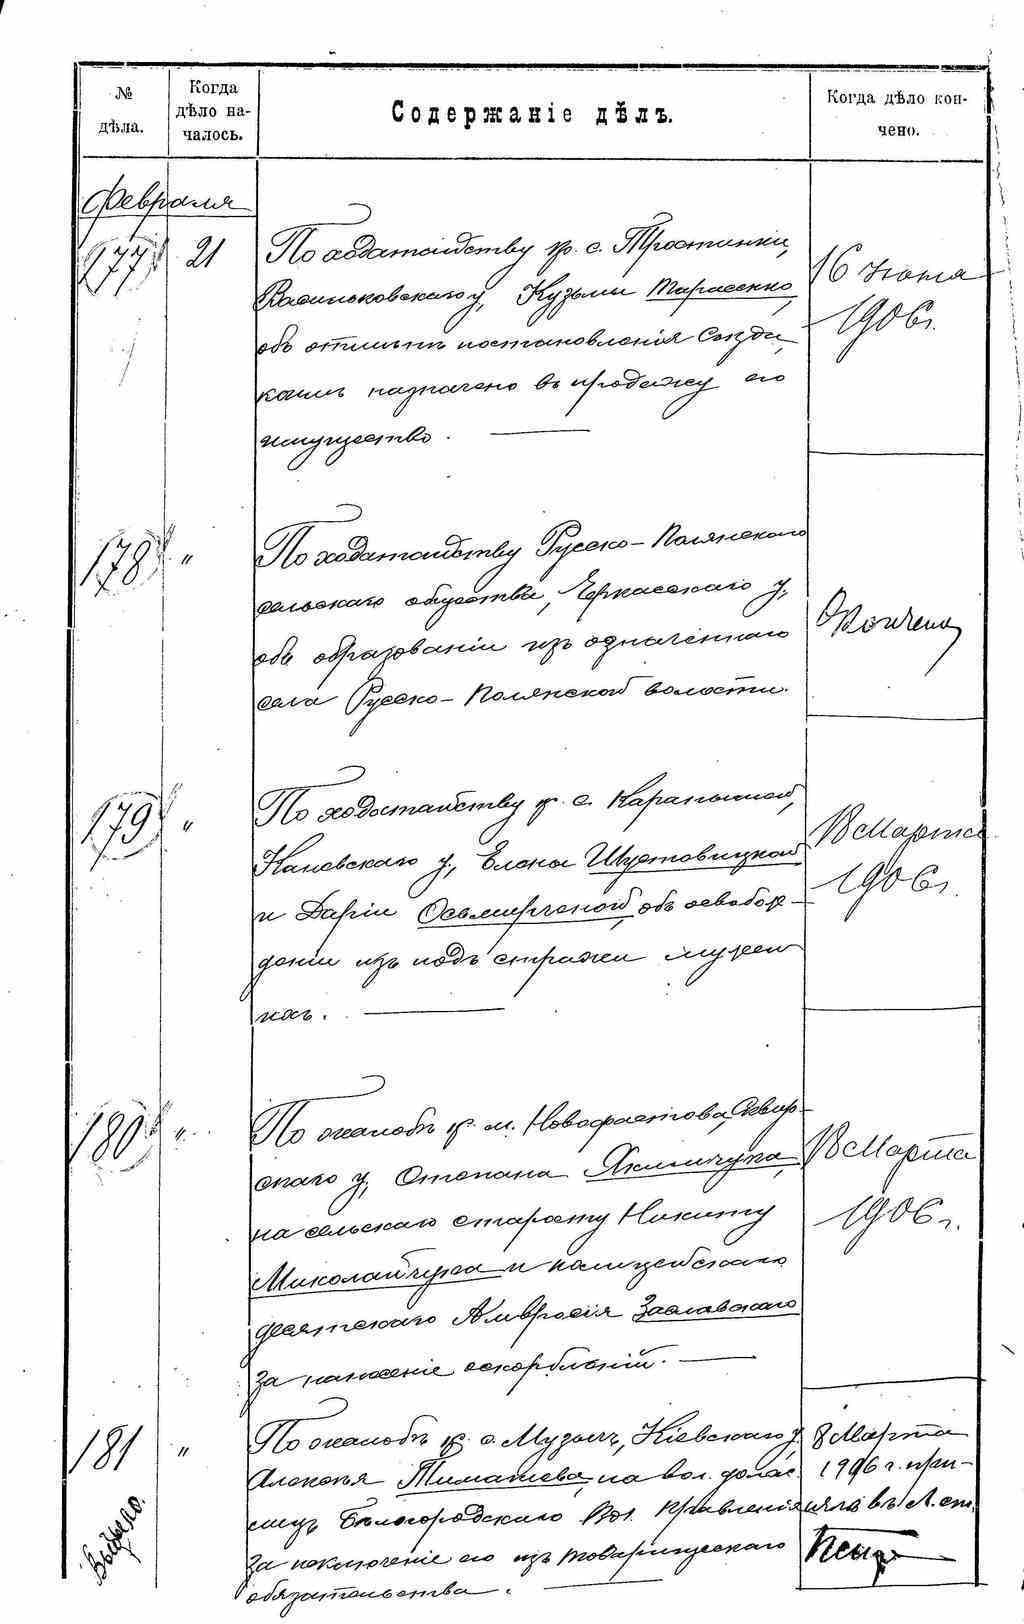 № дѣла.
Когда дѣло началось.
Содержаніе дѣлъ.
Когда дѣло кончено.
Февраля
177
21
По ходатайству кр. с. Тростинки,
Васильковскаго у, Кузьмы Тарасенко,
объ отмѣнѣ постановленія Съѣзда,
коимъ назначено въ продажу его
имущество.
16 Іюня
1906 г.
178
"
По ходатайству Русско-Полянскаго
сельскаго общества, Черкасскаго у,
объ образованіи изъ одначеннаго
села Русско-Полянской волости.
Окончено
179
"
По ходатайству кр. с. Карапышей,
Каневскаго у, Елены Шустовицкой
и Даріи Осьмирченой, объ освобож-
деніи изъ подъ стражи мужей
ихъ.
18 Марта
1906 г.
180
"
По жалобѣ кр. м. Новофастова, Сквир-
скаго у, Степана Якимчука,
на сельскаго старосту Никиту
Миколайчука и полицейскаго
десятскаго Амвросія Заславскаго
за нанесеніе оскорбленій.
18 Марта
1906 г.
181
"
По жалобѣ кр. с. Музычъ, Кіевскаго у.
Алексѣя Тимашева, на вол. долж.
лицъ Бѣлогородскаго Вол. Правленія
за исключеніе его изъ товарищескаго
обязательства.
8 Марта
1906 г. при-
Выбыло.